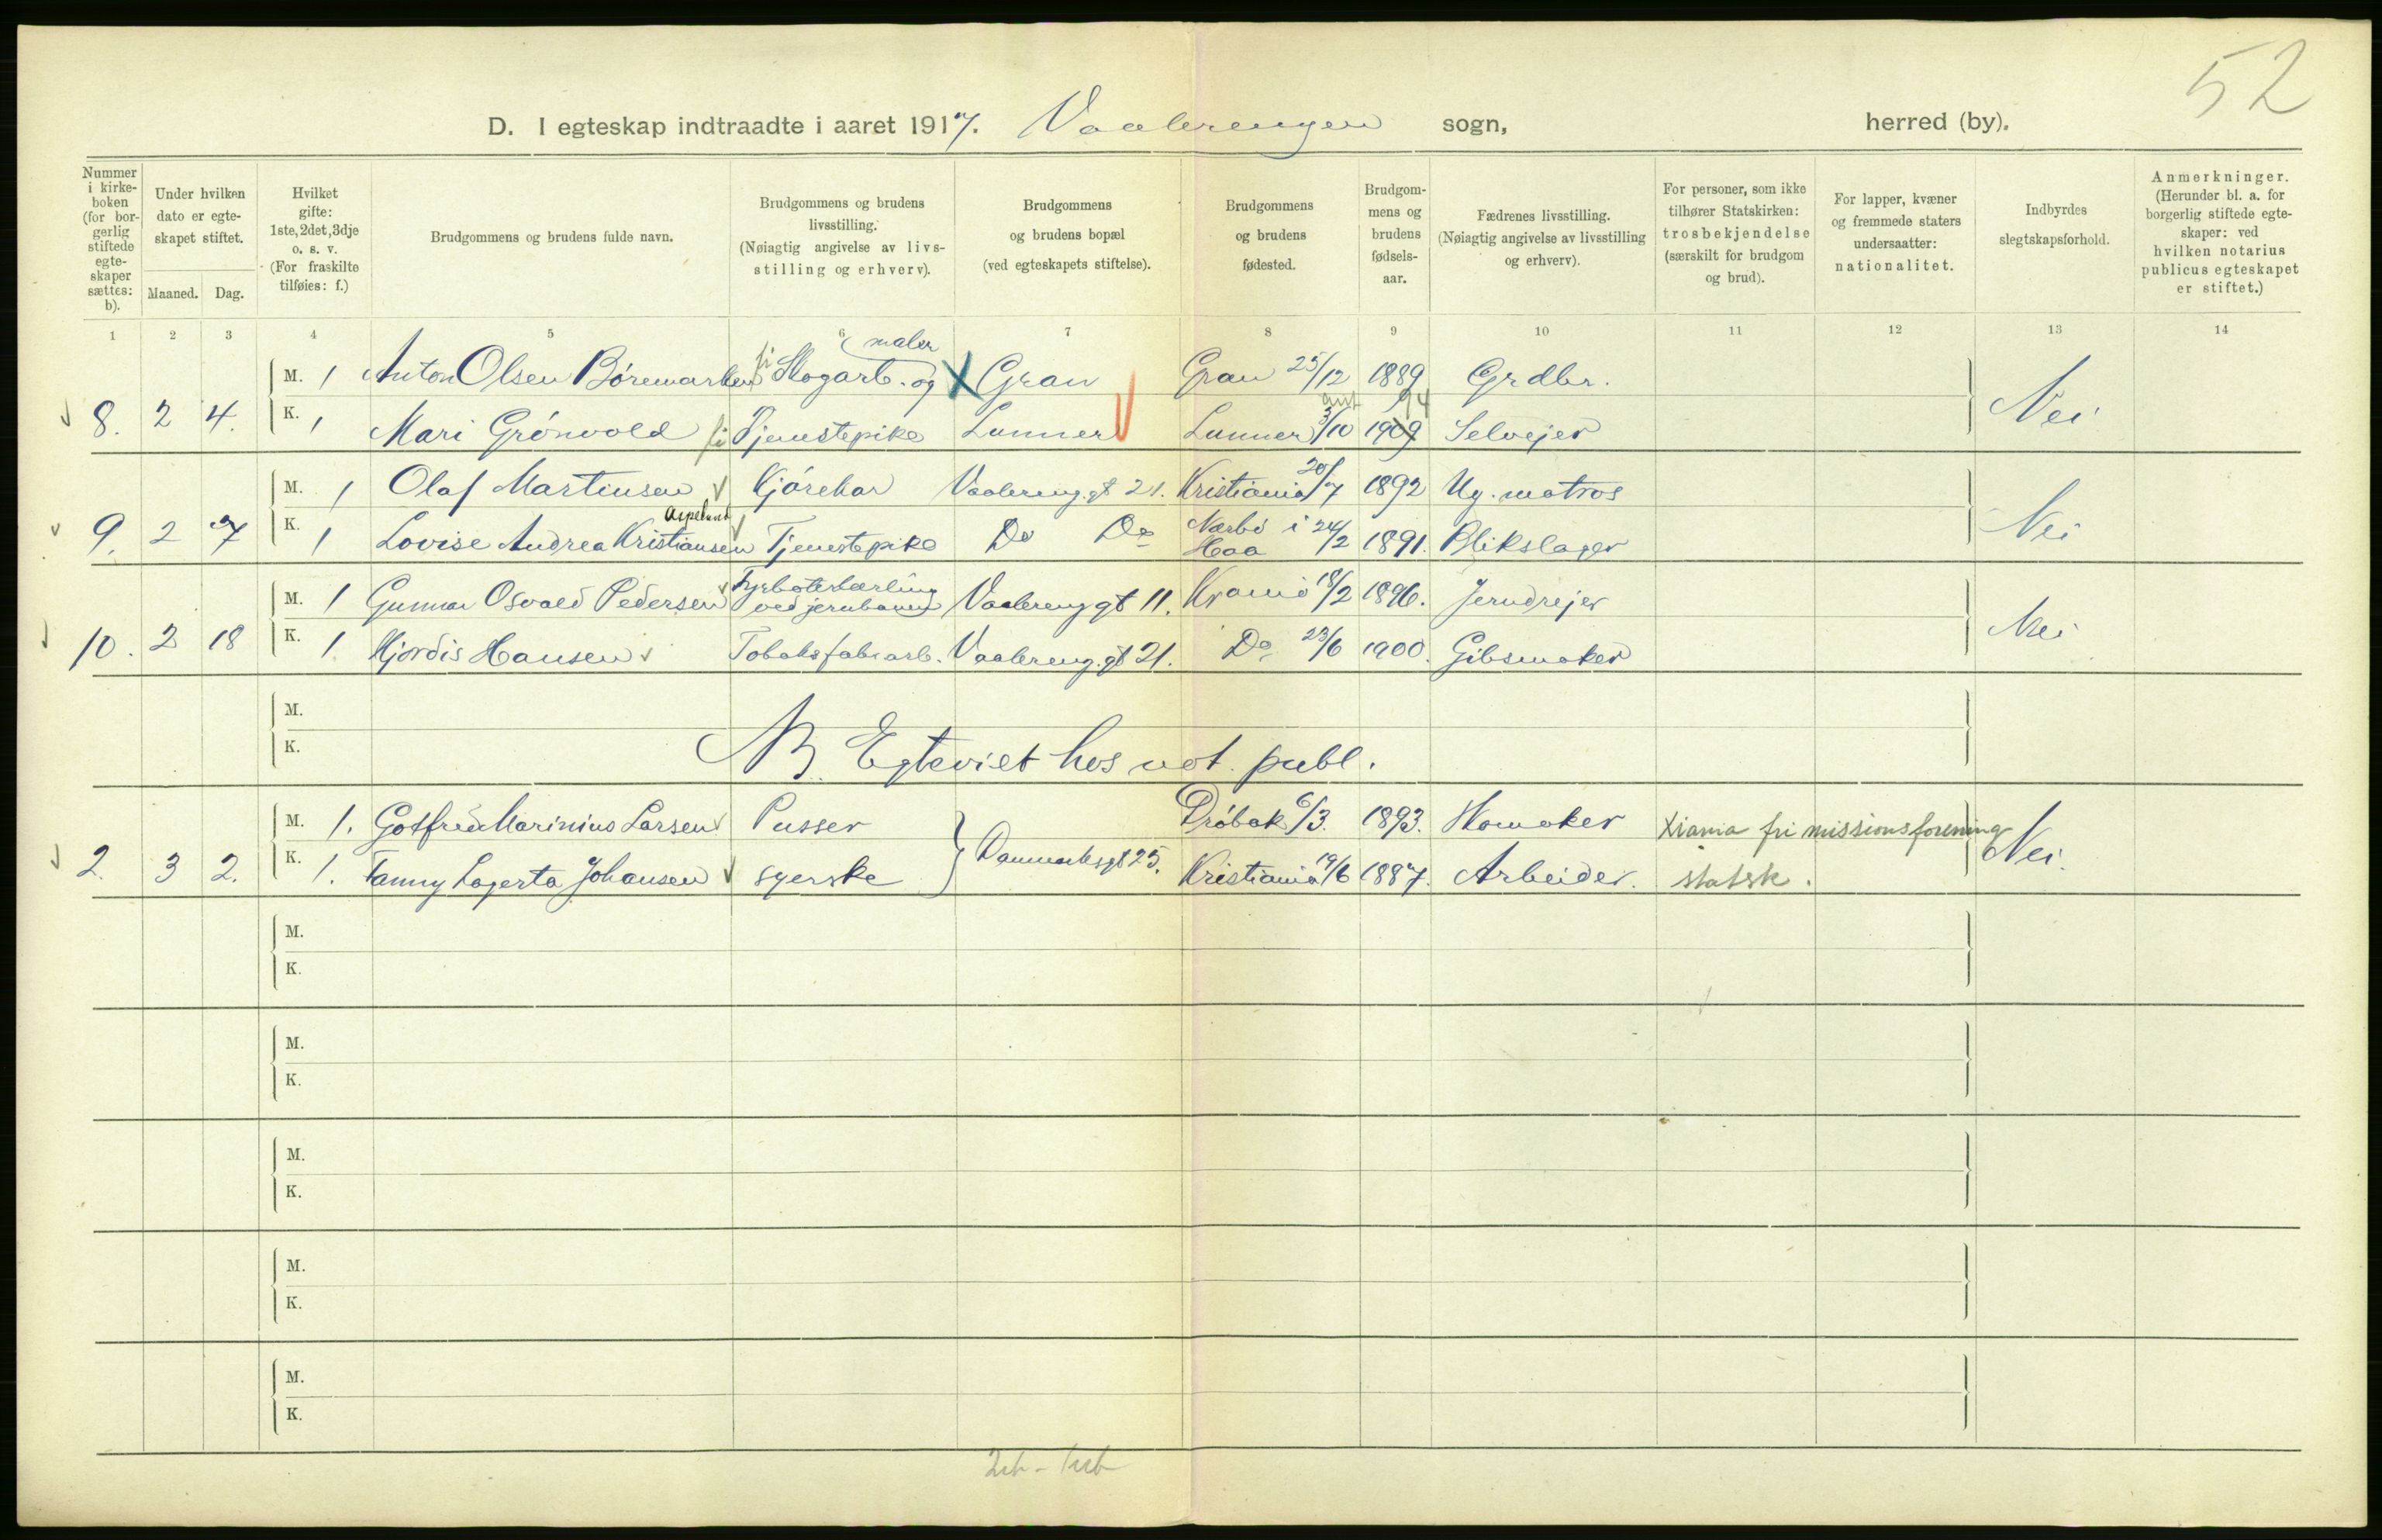 52
D. I egteskap indtraadte i aaret 1917. Vaalerengen sogn, herred (by).
Nummer i kirkeboken (for borgerlig stiftede egteskaper sættes: b).
Under hvilken dato er egteskapet stiftet.
Maaned. Dag.
Hvilket gifte: 1ste, 2det, 3dje o. s. v. (For fraskilte tilføies: f.)
Brudgommens og brudens fulde navn.
Brudgommens og brudens livsstilling. (Nøiagtig angivelse av livsstilling og erhverv).
Brudgommens og brudens bopæl (ved egteskapets stiftelse).
Brudgommens og brudens fødested.
Brudgommens og brudens fødselsaar.
Fædrenes livsstilling. (Nøiagtig angivelse av livsstilling og erhverv).
For personer, som ikke tilhører Statskirken: trosbekjendelse (særskilt for brudgom og brud).
For lapper, kvæner og fremmede staters undersaatter: nationalitet.
Indbyrdes slegtskapsforhold.
Anmerkninger. (Herunder bl. a. for borgerlig stiftede egteskaper: ved hvilken notarius publicus egteskapet er stiftet.)
1 2 3 4 5 6 7 8 9 10 11 12 13 14
maler
M. 1 Anton Olsen Böremarken Skogarb. og X Gran Gran 25/12 1889 Grdbr.
8. 2 4. K. 1 Mari Grönvold Tjenestepike Lunner Lunner 3/10 1909 94 Selvejer Nei
M. 1 Olaf Martinsen Kjörekar Vaalereng.gt 21. Kristiania 20/7 1892 Ug. matros
Aspelund
9. 2 7 K. 1 Lovise Andrea Kristiansen Tjenestepike Do Do Nærbö i Haa 24/2 1891. Blikslager Nei
M. 1 Gunnar Osvald Pedersen Fyrböterlærling ved jernbanen Vaalereng gt 11. Kr.ania 18/2 1896. Jerndrejer
10. 2 18 K. 1 Hjördis Hansen Tobaksfabr.arb. Vaalereng.gt 21. Do 23/6 1900. Gibsmaker Nei
M.
K.
NB. Egteviet hos not. publ.
M. 1. Gotfred Marinius Larsen Pusser Dröbak 6/3. 1893. Skomaker Xiania fri missionsforening
2. 3 2. K. 1. Fanny Lagerta Johansen syerske Danmarksgt 25. Kristiania 19/6 1887. Arbeider. statsk. Nei.
M.
K.
M.
K.
M.
K.
M.
K.
M.
K.